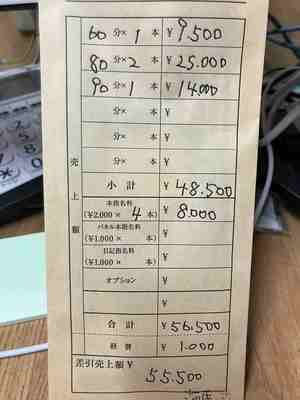 60分× 1 本 ¥ 9.500
80分× 2 本 ¥ 25.000
90分× 1 本 ¥ 14.000
分× 本 ¥
分× 本 ¥
分× 本 ¥
売上額
小計 ¥ 48.500
本指名料
(¥2,000× 4 本) ¥ 8.000
パネル本指名料
(¥1,000× 本) ¥
日記指名料
(¥1,000× 本) ¥
オプション ¥
合計 ¥ 56.500
経費 ¥ 1.000
差引売上額 ¥
55.500